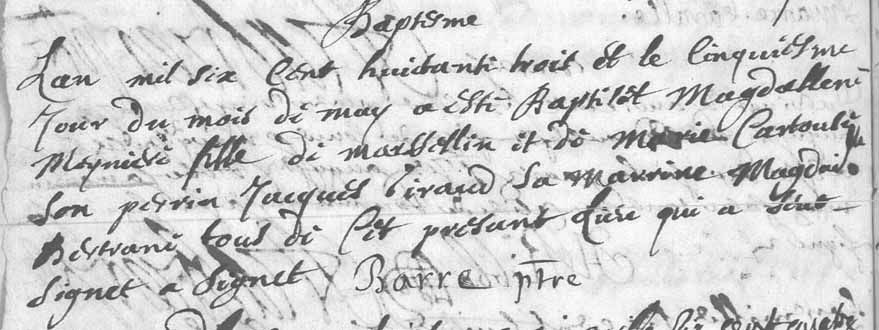 Baptesme
Lan mil six Cent huictante trois et le Cinquiesme
Jour du mois de may a esté Baptisét Magdallene
Meyniere fille de marsellin et de Marie Cartoule
son perrin Jacques Giraud sa Marrine Magdal
Bertrane tous de Cet présant Lieu qui a seut
signet a signet Barre ptre